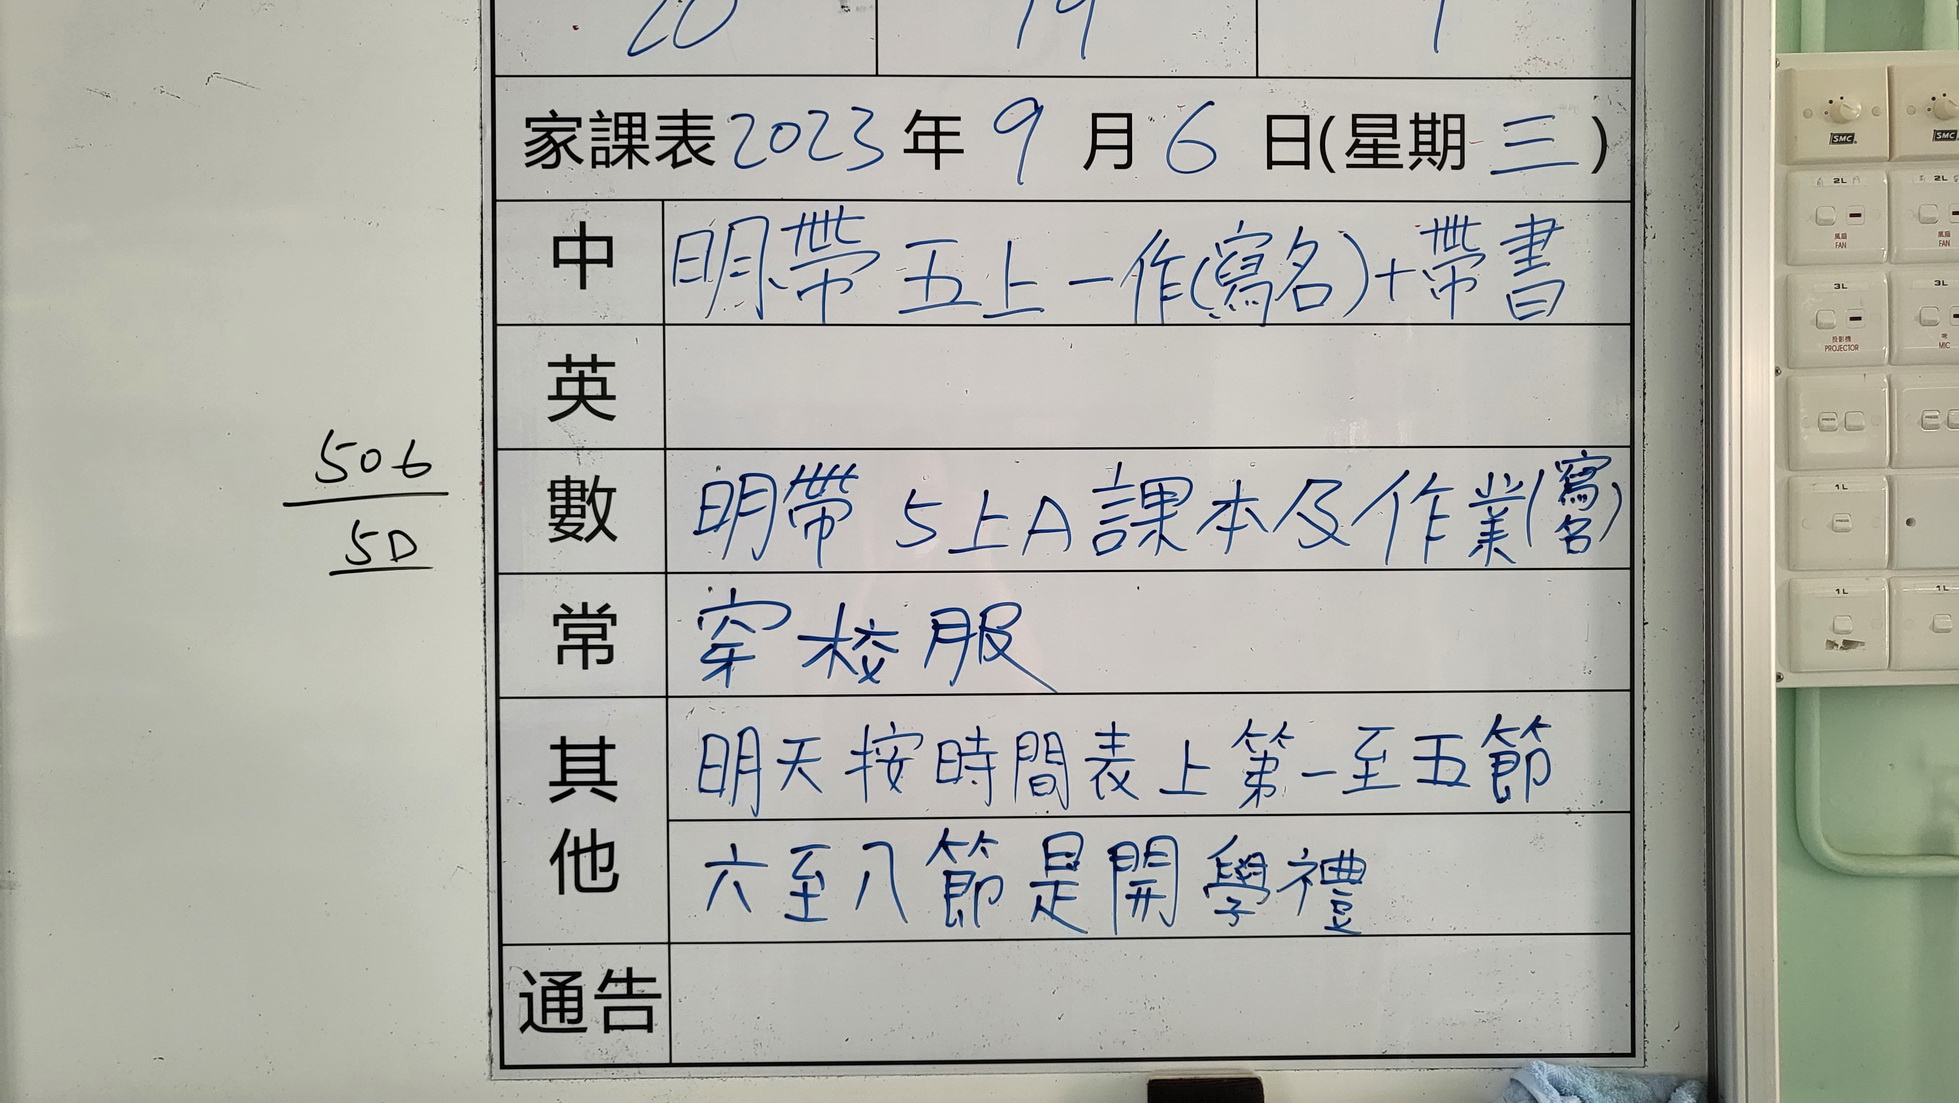 20 19 1
家課表2023年9月6日(星期三)
中 明帶五上一作(寫名)+帶書
英
數 明帶5上A課本及作業(寫名)
常 穿校服
其他 明天按時間表上第一至五節
六至八節是開學禮
通告
506
5D
SMC SMC
2L 2L
風扇 FAN 風扇 FAN
3L 3L
投影機 PROJECTOR 咪 MIC
PRESS PRESS
1L
1L 1L